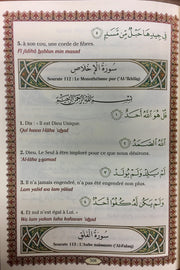 فِي جِيدِهَا حَبْلٌ مِّن مَّسَدٍ ٥
5. à son cou, une corde de fibres.
Fî jîdihâ hablun min masad
سُورَةُ الإِخْلَاصِ
Sourate 112 : Le Monothéisme pur ('Al-'Ikhlâs)
بِسْمِ اللَّهِ الرَّحْمَٰنِ الرَّحِيمِ
قُلْ هُوَ اللَّهُ أَحَدٌ ١
1. Dis : « Il est Dieu Unique.
Qul huwa l-lâhu 'ahad
اللَّهُ الصَّمَدُ ٢
2. Dieu, Le Seul à être imploré pour ce que nous désirons.
'Al-lâhu ṣ-ṣamad
لَمْ يَلِدْ وَلَمْ يُولَدْ ٣
3. Il n'a jamais engendré, n'a pas été engendré non plus.
Lam yalid wa lam yûlad
وَلَمْ يَكُن لَّهُ كُفُوًا أَحَدٌ ٤
4. Et nul n'est égal à Lui. »
Wa lam yakun lahu kufuwan 'ahad
سُورَةُ الْفَلَقِ
Sourate 113 : L'aube naissante ('Al-Falaq)